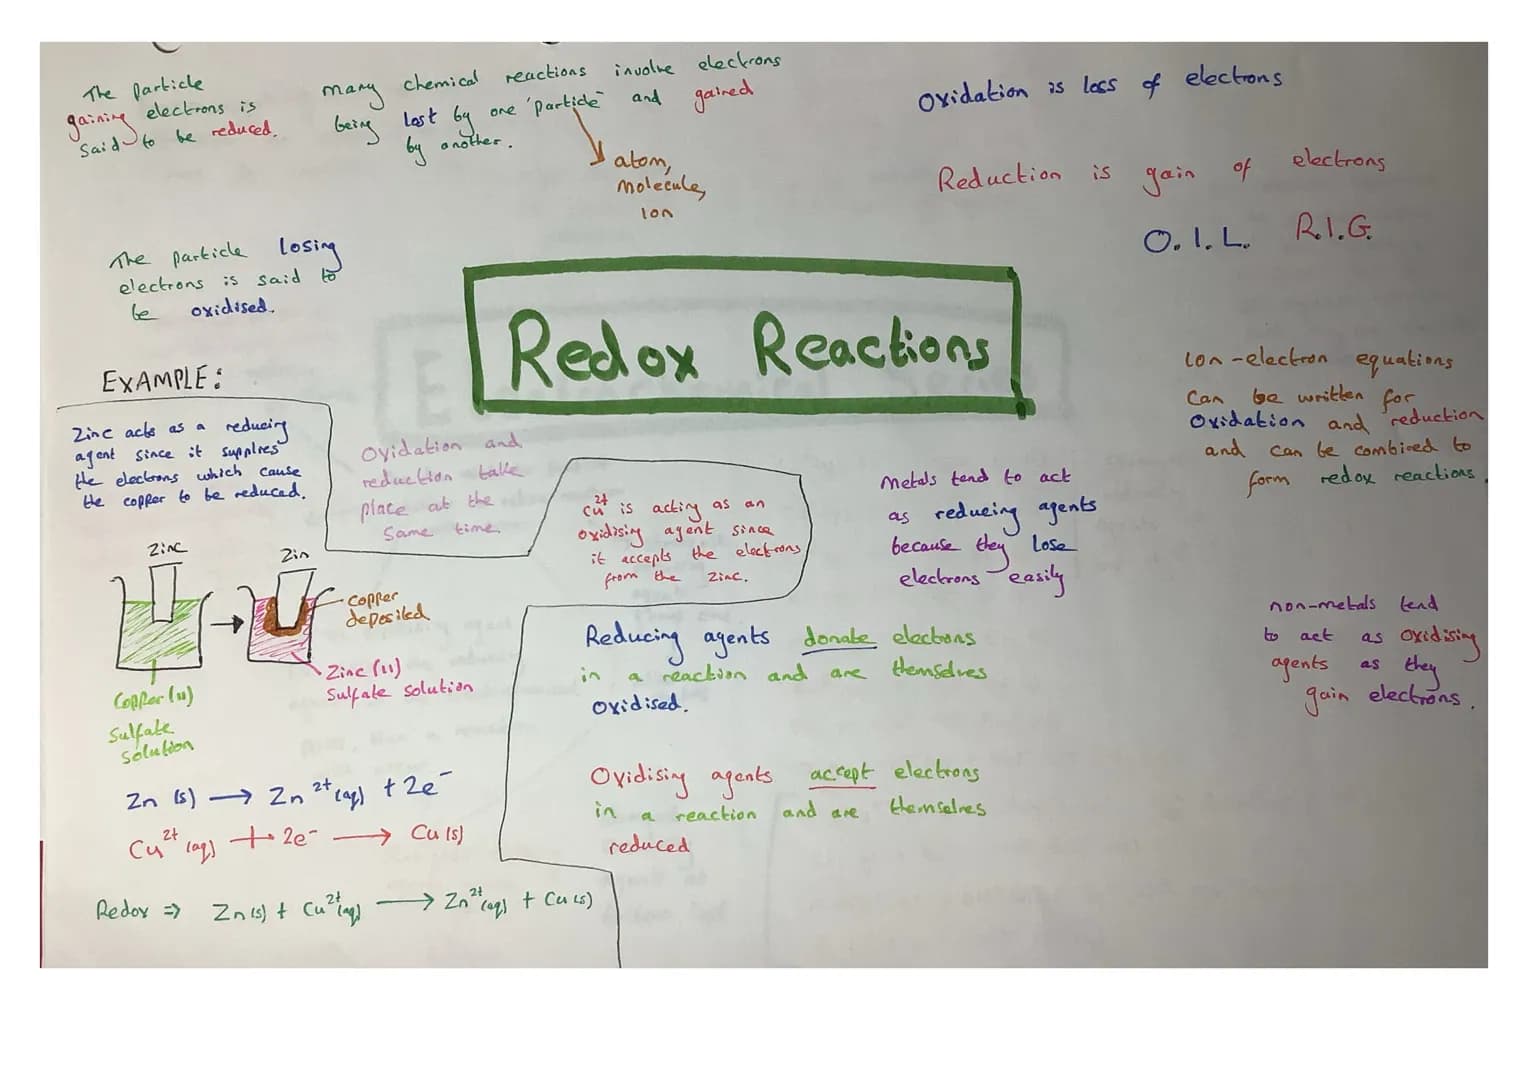 The particle
gaining electrons is
said to be reduced.
many chemical reactions involve electrons
being lost by one 'particle' and gained
by another.
atom,
molecule,
Ion
Oxidation is loss of electrons
Reduction is gain of electrons
O.I.L. R.I.G.
The particle losing
electrons is said to
be oxidised.
Redox Reactions
EXAMPLE:
Zinc acts as a reducing
agent since it supplies
the electrons which cause
the copper to be reduced.
Oxidation and
reduction take
place at the
same time
Cu²⁺ is acting as an
oxidising agent since
it accepts the electrons
from the zinc.
Metals tend to act
as reducing agents
because they lose
electrons easily
Ion-electron equations
can be written for
Oxidation and reduction
and can be combined to
form redox reactions.
non-metals tend
to act as oxidising
agents as they
gain electrons.
Zinc
Zin
Copper
deposited
Zinc (II)
Sulfate solution
Copper (II)
Sulfate
Solution
Reducing agents donate electrons
in a reaction and are themselves
Oxidised.
Oxidising agents accept electrons
in a reaction and are themselves
reduced
Zn (s) → Zn²⁺(aq) + 2e⁻
Cu²⁺(aq) + 2e⁻ → Cu (s)
Redox ⇒ Zn(s) + Cu²⁺(aq) → Zn²⁺(aq) + Cu(s)